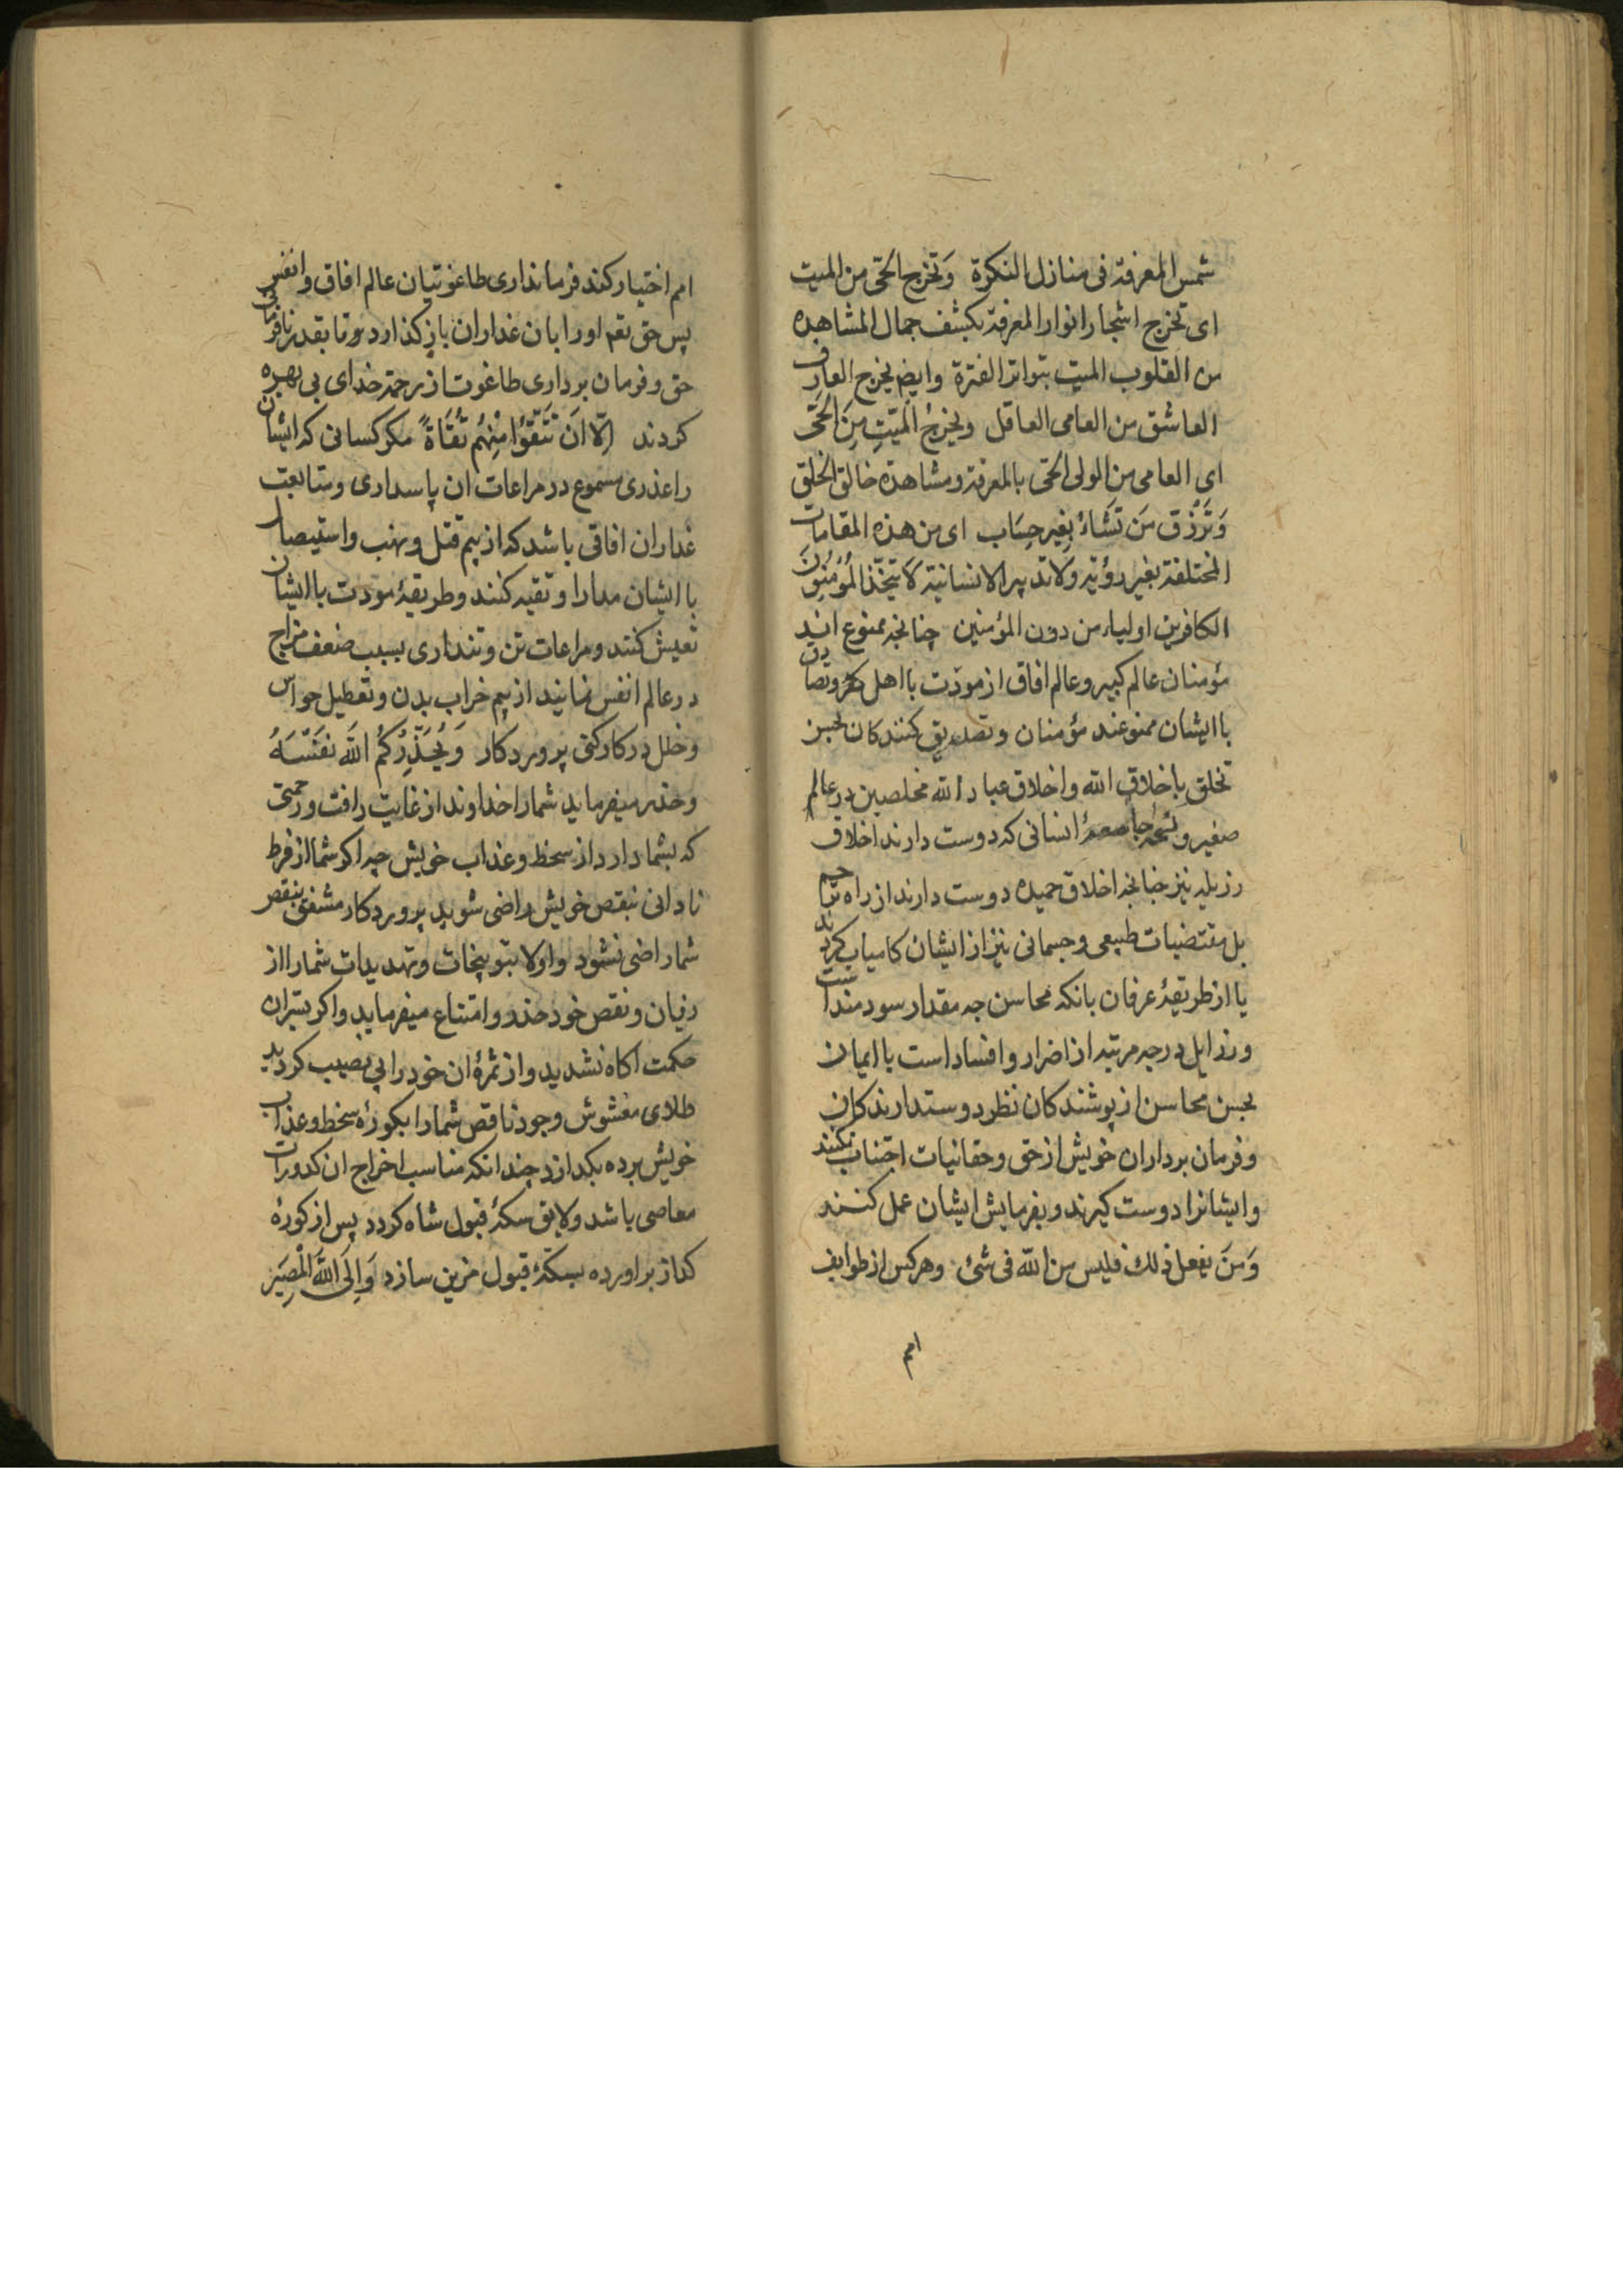 شمس المعرفة فی منازل النکرة وَتخرج الحَی من المیت
ای تخرج اشجار انوار المعرفة بکشف جمال المشاهده
من القلوب المیت بتواتر الفترة وایضا یخرج العارف
العاشق من العامی العاقل ویخرجُ المیّتِ مِنَ الحَی
ای العامی من الولی الحَی بالمعرفة ومشاهدة خالق الخلق
وَتَرْزُق مَن تَشَاءُ بِغیر حِسَاب ای من هذه المقامات
المختلفة بغیر رؤیة ولا تدبیر الانسانیة لا یَتَّخِذ المُؤْمِنُونَ
الکافرین اولیاء من دون المؤمنین چنانچه ممنوع اند
مؤمنان عالم کبیر وعالم افاق از مودّت با اهل کفر وتصادق
با ایشان ممنوعند مؤمنان وتصدیق کنندکان بحسن
تخلق باخلاق الله واخلاق عباد الله مخلصین در عالم
صغیر ونسخهٔ جامعهٔ انسانی که دوست دارند اخلاق
رزیله نیز چنانچه اخلاق حمیده دوست دارند از راه
بل مقتضیات طبیعی وجسمانی نیز از ایشان کامیاب کردند
یا از طریقهٔ عرفان بانکه محاسن چه مقدار سودمند است
ورزایل در چه مرتبه از اضرار وافساد است با ایمان
بحسن محاسن از پوشندکان نظر دوستدارند کران
وفرمان برداران خویش از حق وحقانیات اجتناب نکنند
وایشانرا دوست کیرند وبفرمایش ایشان عمل کنند
وَمَن یفعل ذلك فلیس من الله فی شئ وهرکس از طوایف
امم
امم اختیار کند فرمانداری طاغوتیان عالم افاق وانفس
پس حق تعم اورا بان غداران باز کذارد وتا بقدر نافرمانی
حق وفرمان برداری طاغوت از رحمة خدای بی بهره
کردند اِلّا اَن تَتَّقُوا مِنْهُم تُقَاةً مکر کسانی که ایشان
را عذری مسموع در مراعات ان پاسداری ومتابعت
غداران افاقی باشد که از بیم قتل ونهب واستیصال
با ایشان مدارا وتقیه کنند وطریقهٔ مودت با ایشان
تعیش کنند ومراعات تن وتنداری بسبب ضعف مزاج
در عالم انفس نمایند از بیم خراب بدن وتعطیل حواس
وخلل در کارکنی پروردکار وَیُحَذِّرُکُم اللهَ نفَسَهُ
وحذر میفرماید شمارا خداوند از غایت رافت ورحمتی
که بشما دارد از سخط وعذاب خویش چه اکر شما از فرط
نادانی بنقص خویش راضی شوید پروردکار مشفق بنقص
شما راضی نشود واولا بتوبیخات وتهدیدات شمارا از
زیان ونقص خود حذر وامتناع میفرماید واکر بسران
حکمت اکاه نشدید واز ثمرهٔ ان خودرا بی نصیب کردید
طلای مغشوش وجود ناقص شمارا بکورهٔ سخط وعذاب
خویش برده بکدازد چندانکه مناسب اخراج ان کدورات
معاصی باشد ولایق سکهٔ قبول شاه کردد پس از کورهٔ
کداز براورده بسکهٔ قبول مزین سازد وَاِلَی اللهَ المَصِیَر